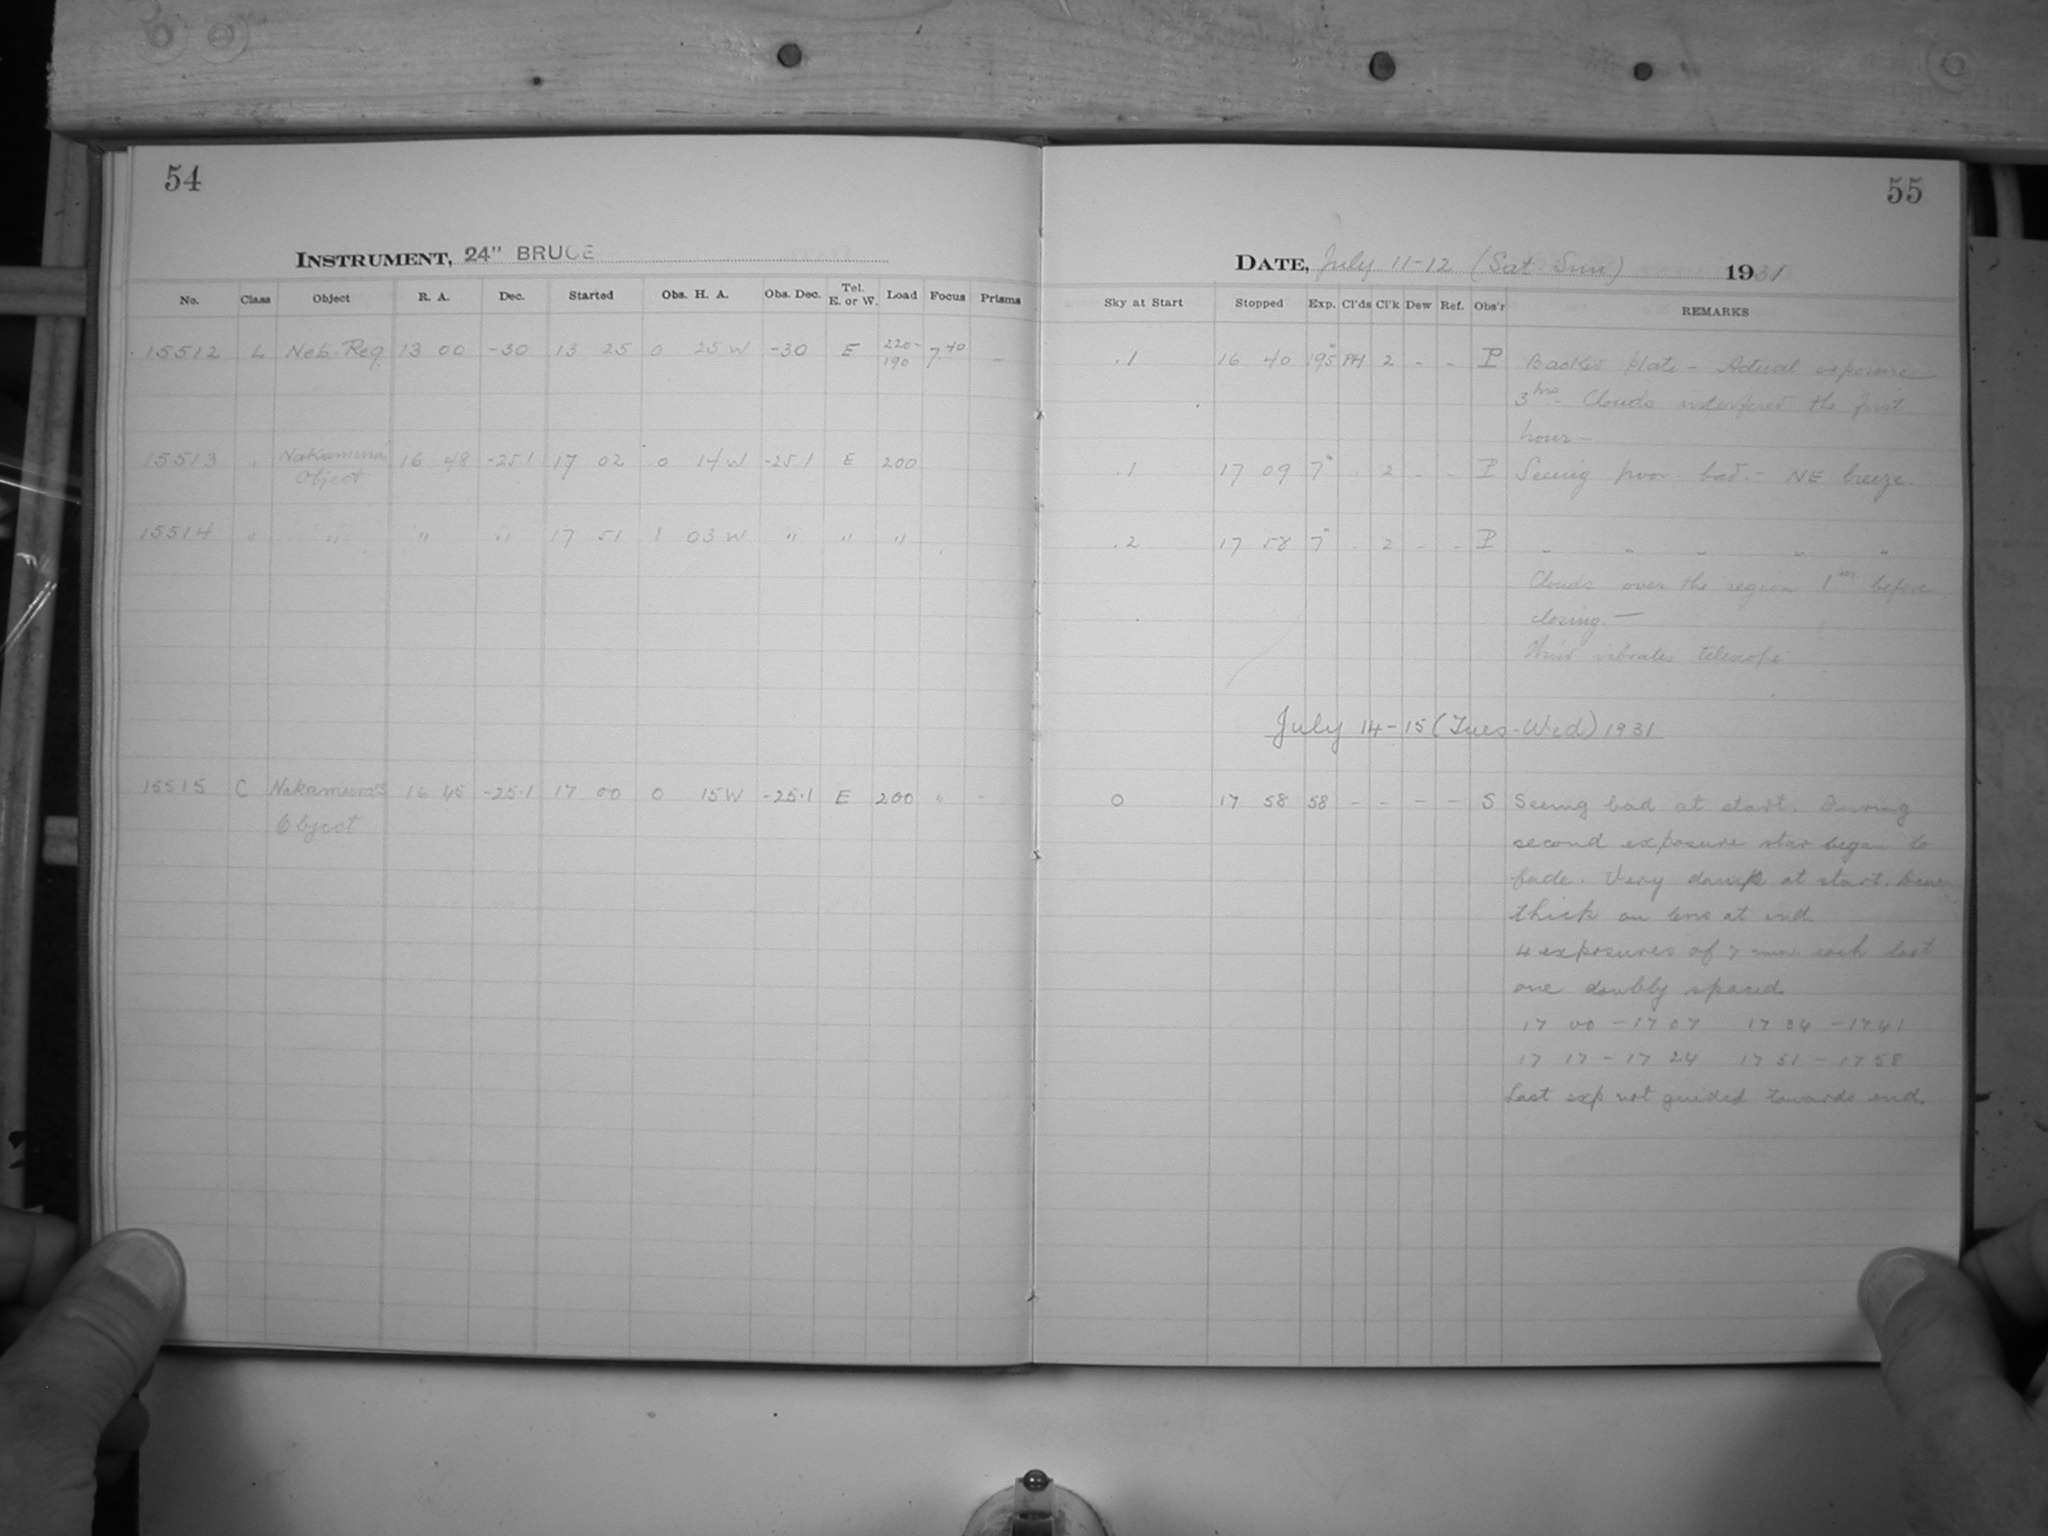 54
INSTRUMENT, 24" BRUCE
No. Class Object R. A. Dec. Started Obs. H. A. Obs. Dec. Tel. E. or W. Load Focus Prisms
15512 L Neb. Reg. 13 00 -30 13 25 0 25 W -30 E 220- 190 7.40 -
15513 " Nakamura's Object 16 48 -25.1 17 02 0 14 W -25.1 E 200
15514 " " " " 17 51 1 03 W " " "
15515 C Nakamura's Object 16 45 -25.1 17 00 0 15 W -25.1 E 200 " -
55
DATE, July 11-12 (Sat. Sun) 1931
Sky at Start Stopped Exp. Cl'ds Cl'k Dew Ref. Obs'r REMARKS
.1 16 40 195 PH 2 - - P Backed plate - Actual exposure
3 hrs - Clouds interfered the first
hour -
.1 17 09 7 " 2 - - P Seeing poor - bad. - NE breeze.
.2 17 58 7 " 2 - - P " " " " "
Clouds over the region 1 m before
closing. -
Wind vibrates telescope
July 14-15 (Tues-Wed) 1931
0 17 58 58 - - - - S Seeing bad at start. During
second exposure star began to
fade. Very damp at start. Dew
thick on lens at end
4 exposures of 7 min. each last
one doubly spaced
17 00 - 17 07 17 34 - 17 41
17 17 - 17 24 17 51 - 17 58
Last exp not guided towards end.